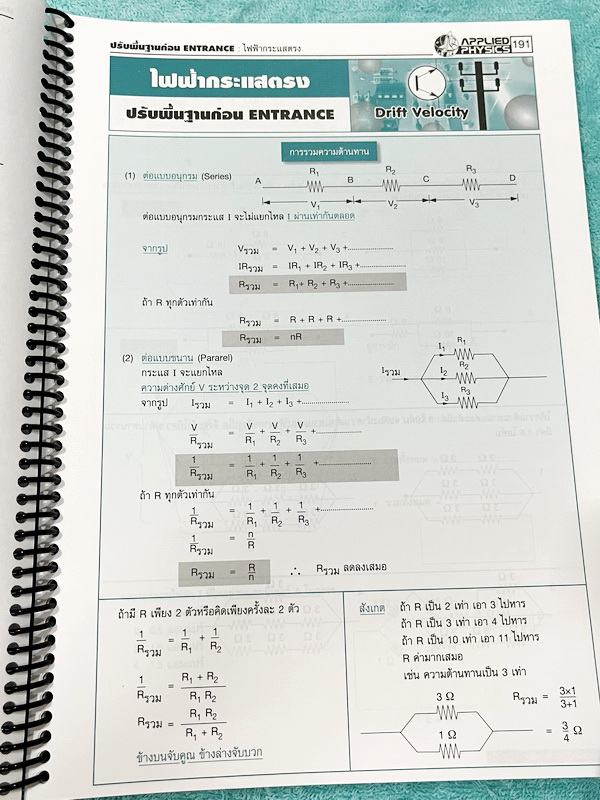 ปรับพื้นฐานก่อน ENTRANCE : ไฟฟ้ากระแสตรง
APPLIED PHYSICS 191
ไฟฟ้ากระแสตรง
ปรับพื้นฐานก่อน ENTRANCE
Drift Velocity
การรวมความต้านทาน
(1) ต่อแบบอนุกรม (Series)
A R₁ B R₂ C R₃ D
V₁ V₂ V₃
ต่อแบบอนุกรมกระแส I จะไม่แยกไหล I ผ่านเท่ากันตลอด
จากรูป Vรวม = V₁ + V₂ + V₃ +....................
IRรวม = IR₁ + IR₂ + IR₃ +....................
Rรวม = R₁+ R₂ + R₃ +....................
ถ้า R ทุกตัวเท่ากัน
Rรวม = R + R + R +....................
Rรวม = nR
(2) ต่อแบบขนาน (Pararel)
กระแส I จะแยกไหล
ความต่างศักย์ V ระหว่างจุด 2 จุดคงที่เสมอ
Iรวม I₁ R₁ I₂ R₂ I₃ R₃
จากรูป Iรวม = I₁ + I₂ + I₃ +....................
V/Rรวม = V/R₁ + V/R₂ + V/R₃ +....................
1/Rรวม = 1/R₁ + 1/R₂ + 1/R₃ +....................
ถ้า R ทุกตัวเท่ากัน
1/Rรวม = 1/R₁ + 1/R₂ + 1/R₃ +....................
1/Rรวม = n/R
Rรวม = R/n ∴ Rรวม ลดลงเสมอ
ถ้ามี R เพียง 2 ตัวหรือคิดเพียงครั้งละ 2 ตัว
1/Rรวม = 1/R₁ + 1/R₂
1/Rรวม = R₁ + R₂ / R₁ R₂
Rรวม = R₁ R₂ / R₁ + R₂
ข้างบนจับคูณ ข้างล่างจับบวก
สังเกต ถ้า R เป็น 2 เท่า เอา 3 ไปหาร
ถ้า R เป็น 3 เท่า เอา 4 ไปหาร
ถ้า R เป็น 10 เท่า เอา 11 ไปหาร
R ค่ามากเสมอ
เช่น ความต้านทานเป็น 3 เท่า
3 Ω
1 Ω
Rรวม = 3×1/3+1
= 3/4 Ω